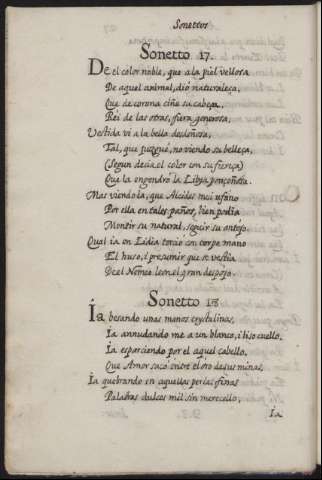 Sonettos
Sonetto 17.
De el color noble, que a la piel vellosa
De aquel animal, dio naturaleça,
Que de corona ciñe su cabeça,
Rei de las otras, fiera generosa,
Vestida vi a la bella desdeñosa,
Tal, que juzguè, no viendo su belleça,
(Segun decia el color con su fiereça)
Que la engendrò la Libya ponçoñosa.
Mas viendola, que Alcides mui ufano
Por ella en tales paños, bien podia
Mentir su natural, seguir su antojo.
Qual ia en Lidia torcio con torpe mano
El huso, i presumir que se vestia
De el Nemeo leon el gran despojo.
Sonetto 18
Ia besando unas manos crystalinas,
Ia annudando me a un blanco, i liso cuello,
Ia esparciendo por el aquel cabello,
Que Amor sacò entre el oro de sus minas,
Ia quebrando en aquellas perlas finas
Palabras dulces mil sin merecello,
Ia